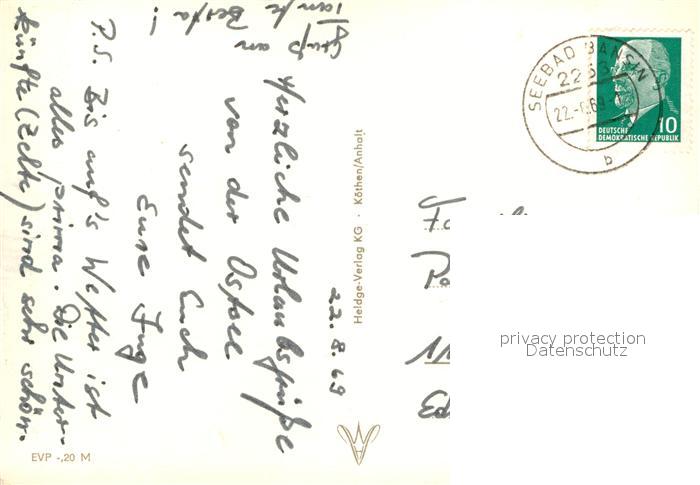 22.8.69
Herzliche Urlaubsgrüße
von der Ostsee
sendet Euch
Eure Inge
P.S. Bis auf's Wetter ist
alles prima. Die Unter-
künfte (Zelte) sind sehr schön.
Gruß an
!
Heldge-Verlag KG · Köthen/Anhalt
EVP -,20 M
SEEBAD BANSIN
22.-8.69
b
DEUTSCHE
DEMOKRATISCHE REPUBLIK
10
privacy protection
Datenschutz